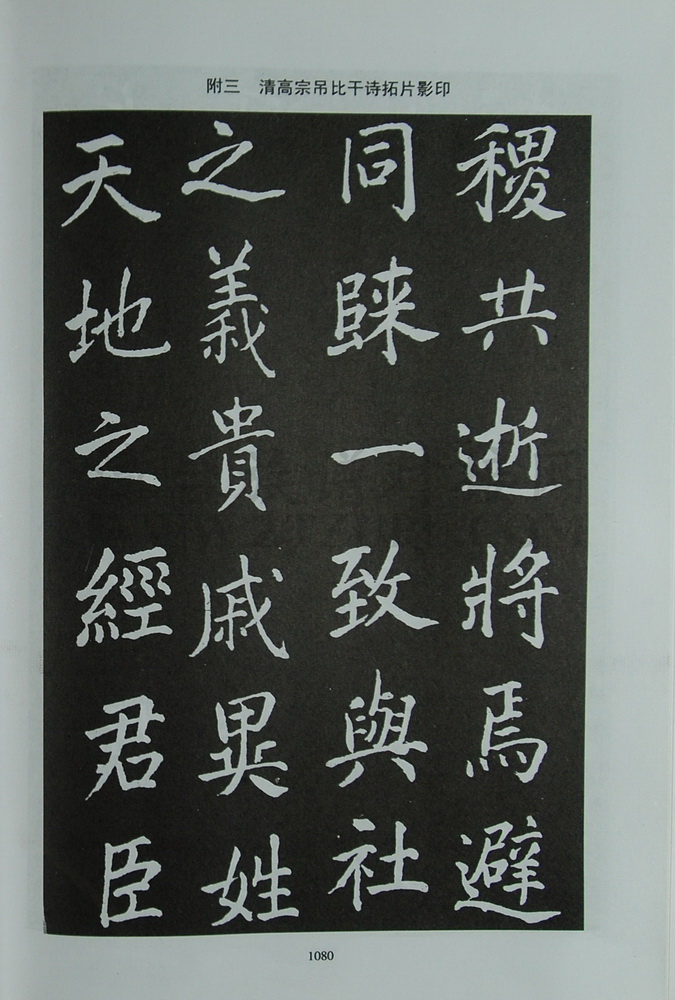 附三 清高宗吊比干诗拓片影印
天地之經君臣
之義貴戚異姓
同歸一致與社
稷共逝將焉避
1080